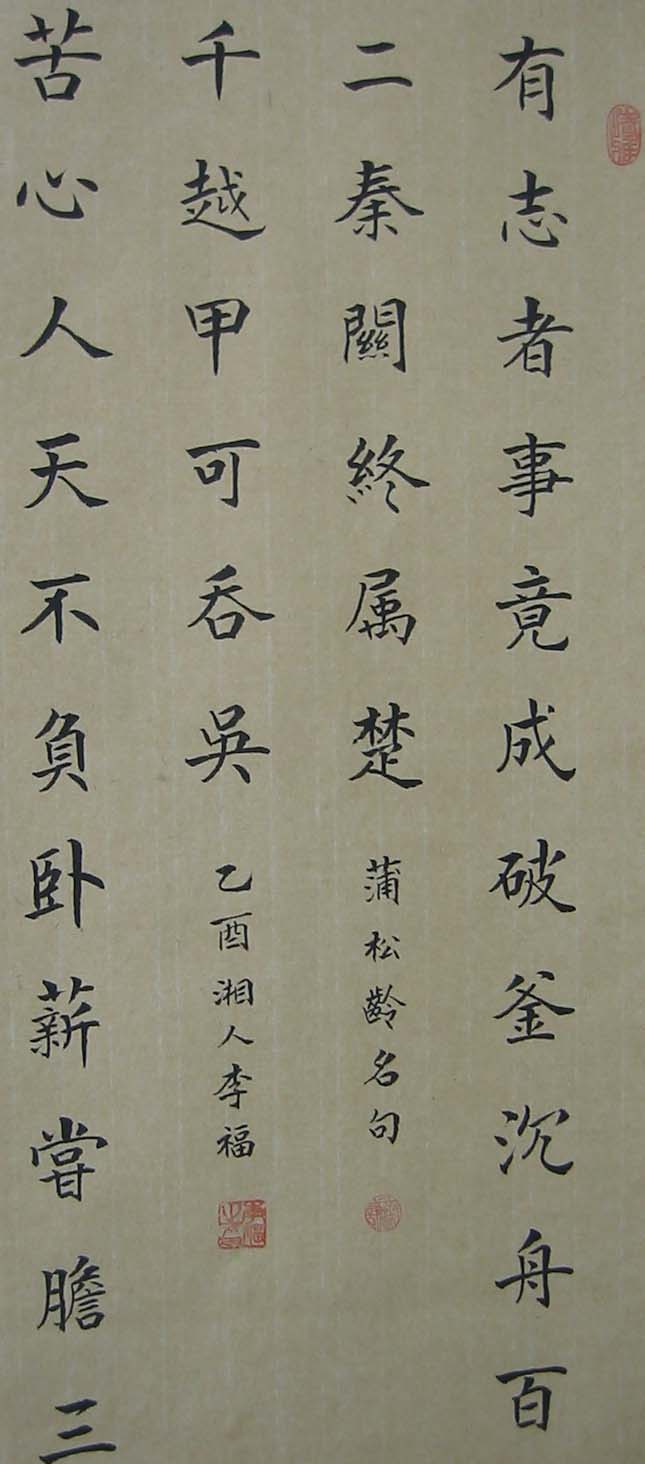 有志者事竟成破釜沉舟百
二秦關終属楚
蒲松齡名句
苦心人天不負卧薪嘗膽三
千越甲可吞吳
乙酉湘人李福